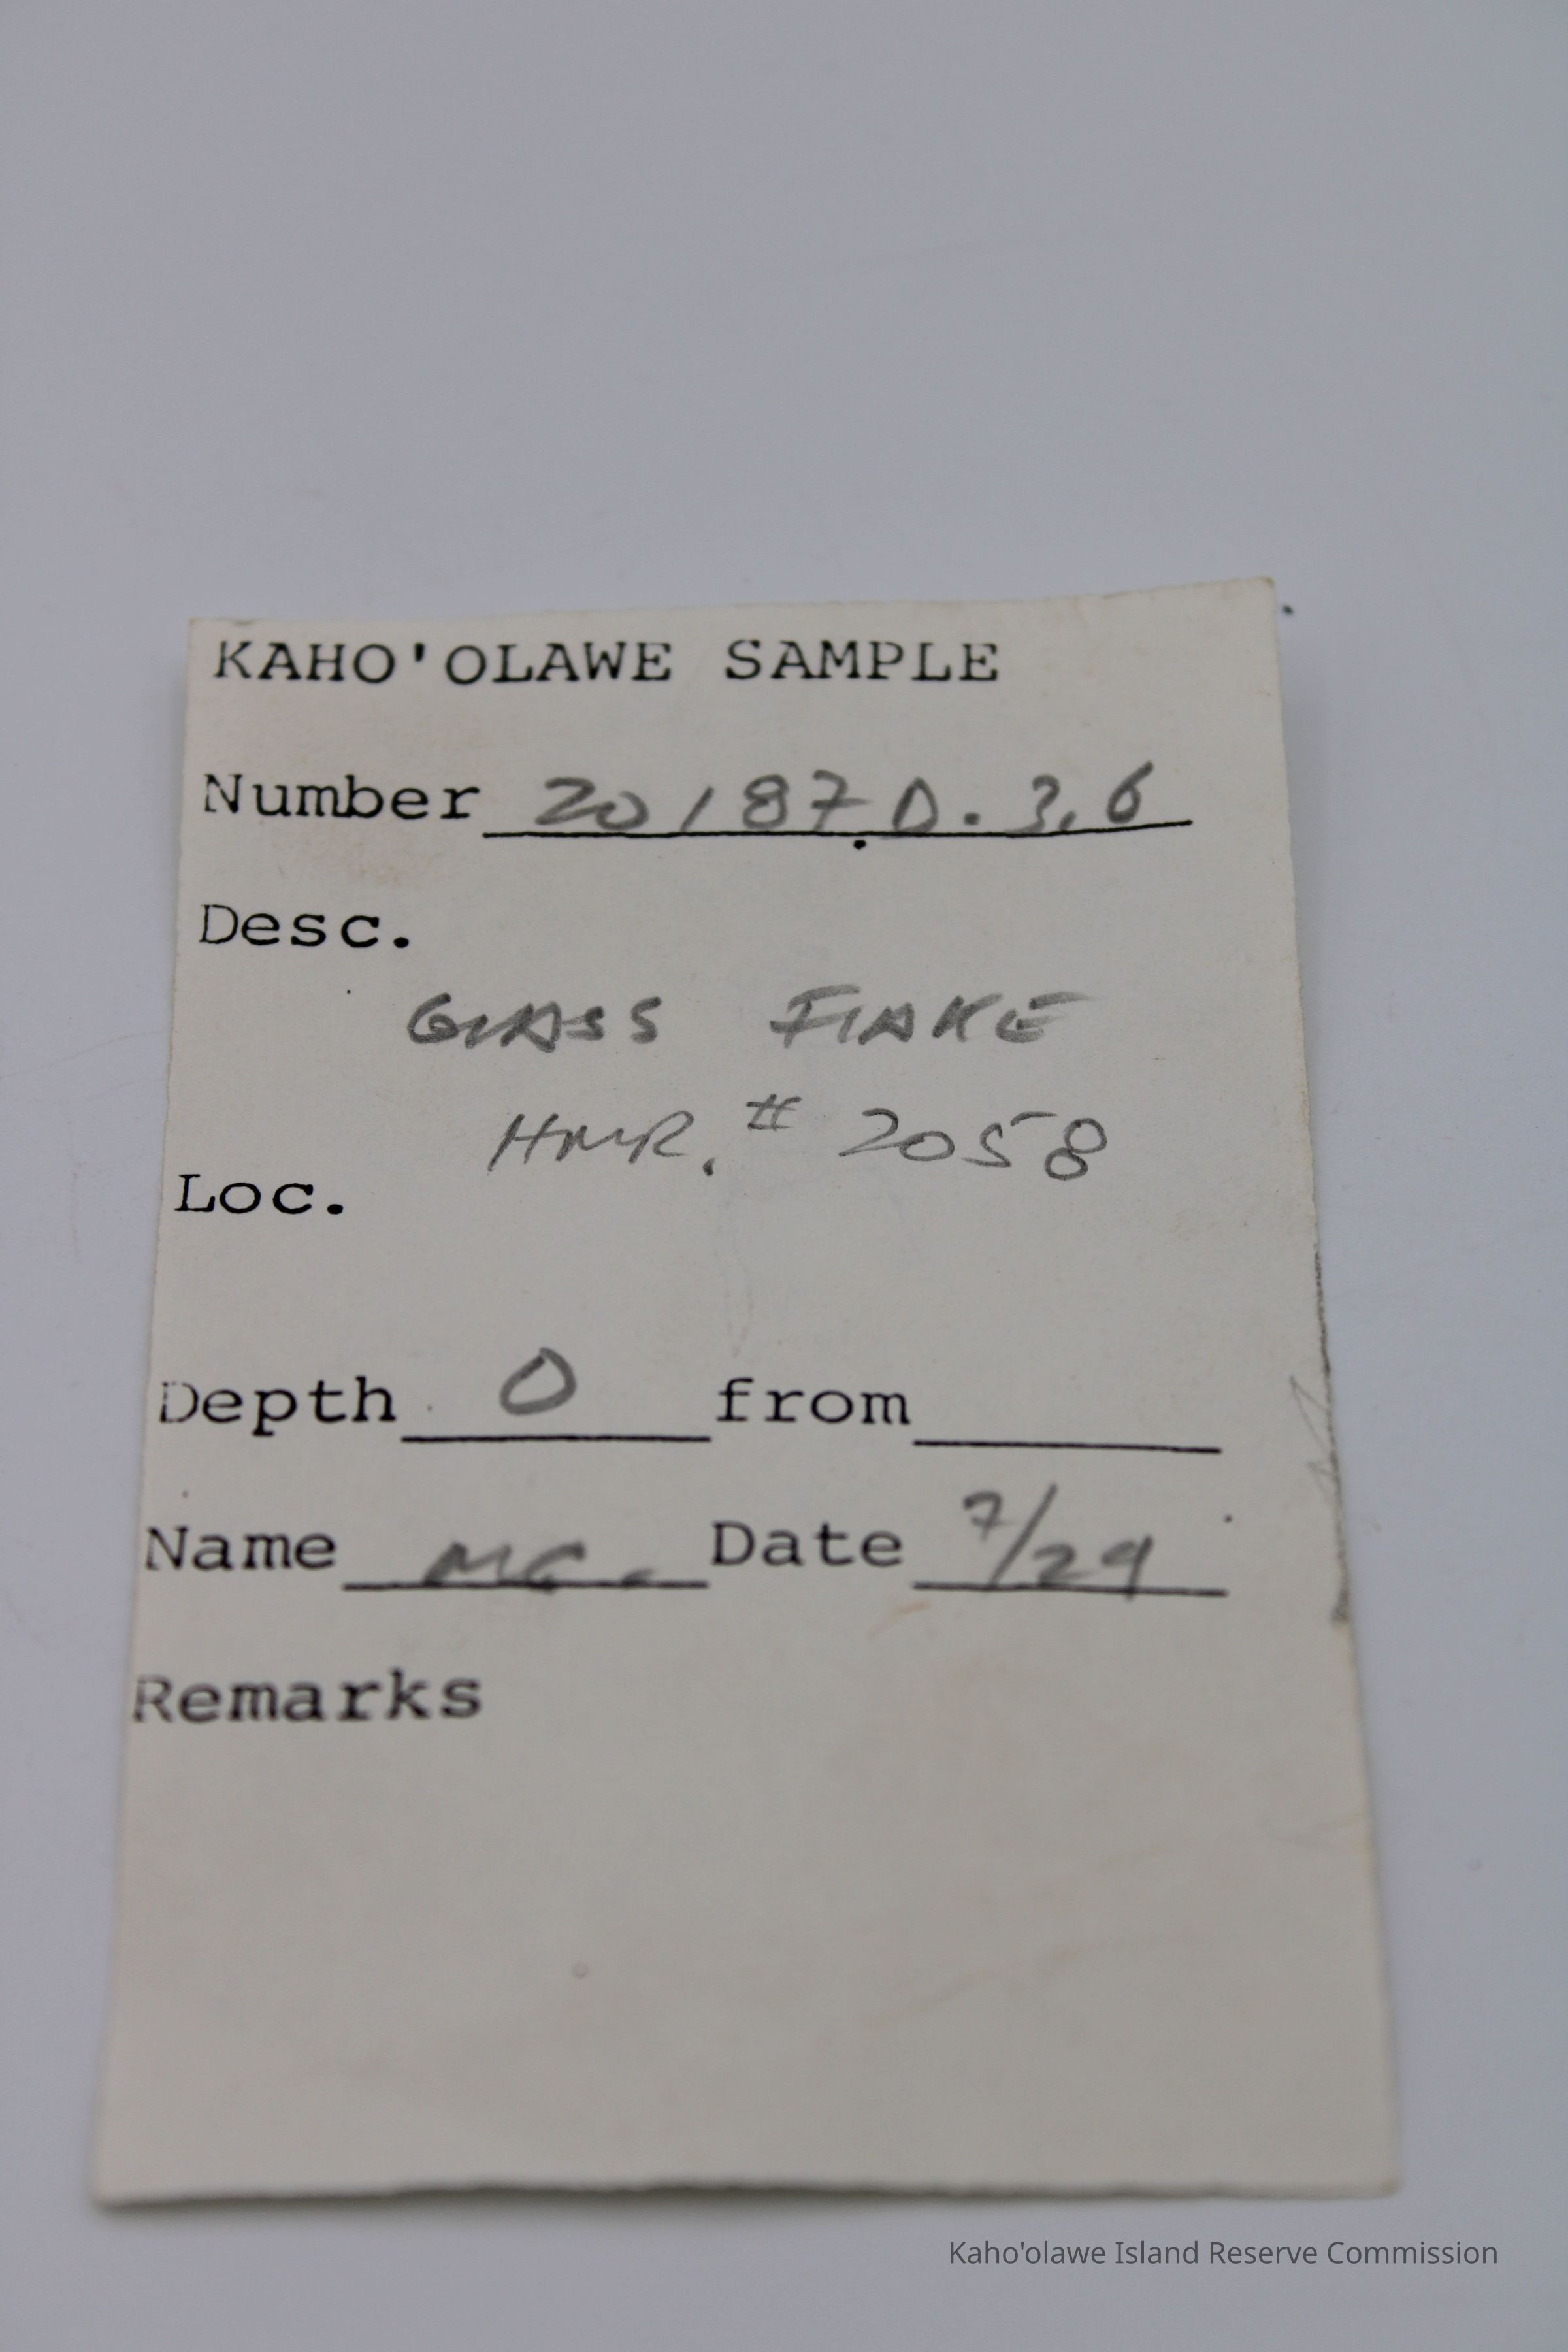 KAHO'OLAWE SAMPLE
Number 20187D.3.6
Desc.
GLASS FLAKE
HMR. # 2058
Loc.
Depth 0 from
Name MC. Date 7/29
Remarks
Kaho'olawe Island Reserve Commission